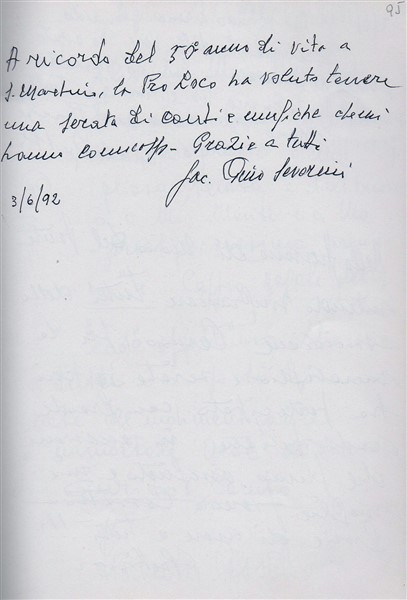 95
A ricordo del 50° anno di vita a
S. Martino, la Pro Loco ha voluto tenere
una serata di canti e musiche che mi
hanno commosso - Grazie a tutti
Sac. Dino Severini
3/6/92